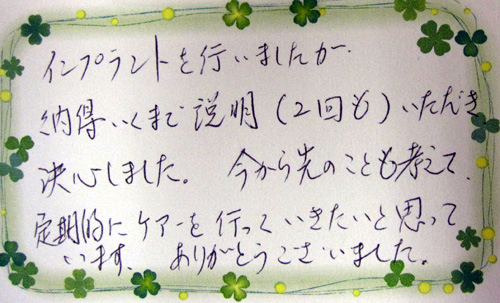 インプラントを行いましたが、
納得いくまで説明(2回も)いただき
決心しました。 今から先のことも考えて、
定期的にケアーを行っていきたいと思って
います。 ありがとうございました。